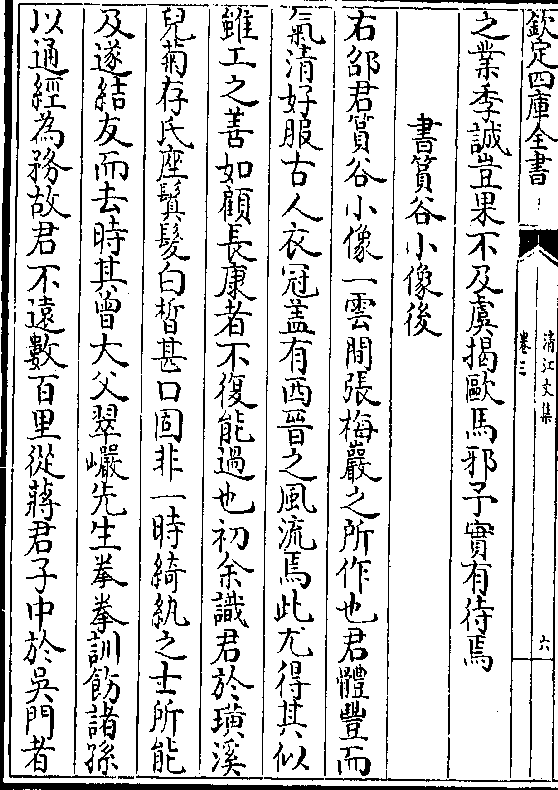 欽定四庫全書
清江文集
卷三
六
之業季誠豈果不及虞揭歐馬邪予實有待焉
書篔谷小像後
右邵君篔谷小像一雲間張梅巖之所作也君體豐而
氣清好服古人衣冠盖有西晉之風流焉此尤得其似
雖工之善如顧長康者不復能過也初余識君於璜溪
兒菊存氏座鬒髮白晳甚口固非一時綺紈之士所能
及遂結友而去時其曾大父翠巗先生拳拳訓飭諸孫
以通經為務故君不逺數百里從蔣君子中於吳門者